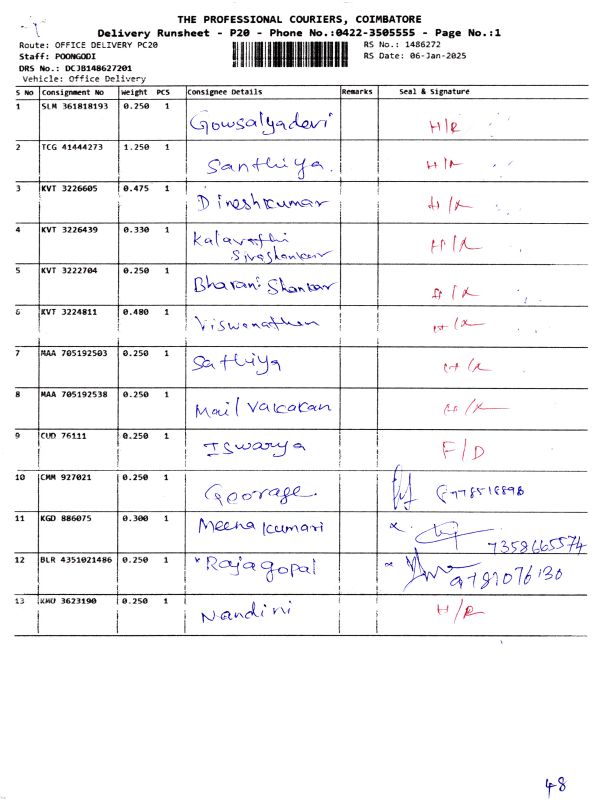 THE PROFESSIONAL COURIERS, COIMBATORE
Delivery Runsheet - P20 - Phone No.:0422-3505555 - Page No.:1
Route: OFFICE DELIVERY PC20 RS No.: 1486272
Staff: POONGODI RS Date: 06-Jan-2025
DRS No.: DCJB148627201
Vehicle: Office Delivery
S No Consignment No Weight PCS Consignee Details Remarks Seal & Signature
1 SLM 361818193 0.250 1 Gowsalyadevi H/R
2 TCG 41444273 1.250 1 Santhiya. H/R
3 KVT 3226605 0.475 1 Dineshkumar H/R
4 KVT 3226439 0.330 1 Kalavathi H/R
Sivashankar
5 KVT 3222704 0.250 1 Bharani Shankar H/R
6 KVT 3224811 0.480 1 Viswanathan H/R
7 MAA 705192503 0.250 1 Sathiya H/R
8 MAA 705192538 0.250 1 Mail
9 CUD 76111 0.250 1 Iswarya F/D
10 CMM 927021 0.250 1
11 KGD 886075 0.300 1 Meena kumari 7358665574
12 BLR 4351021486 0.250 1 Rajagopal
13 KMU 3623190 0.250 1 Nandini H/R
48